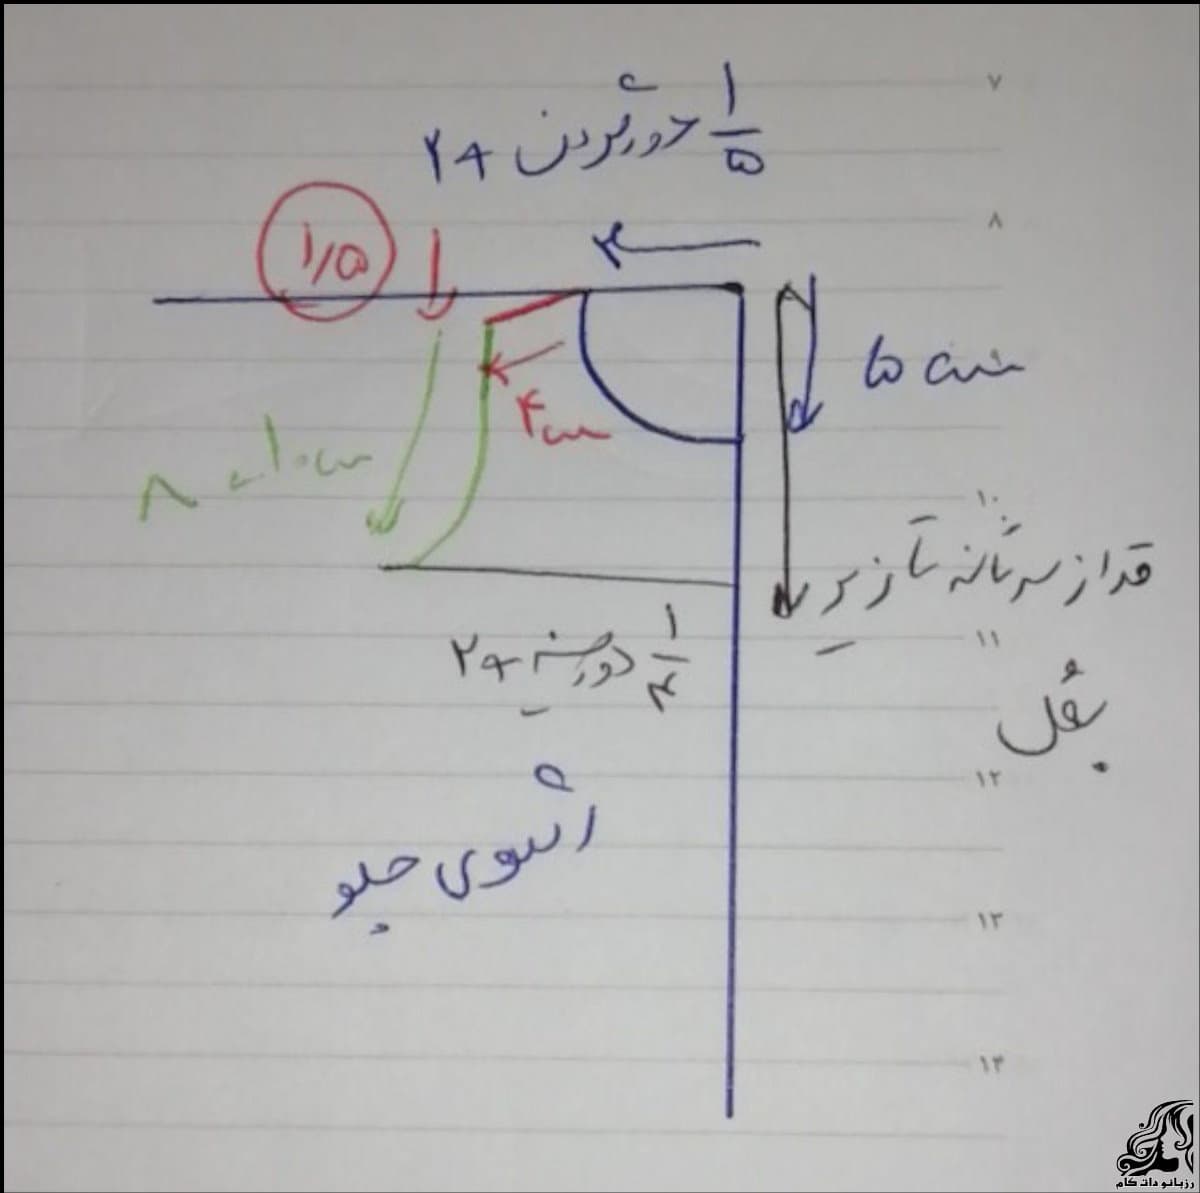 ۷
۱/۵ دور گردن +۲
۸
۱/۵
۵ سانت
۴ cm
۸ - ۱۰ cm
۱۰
قد از سر شانه تا زیر
بغل
۱۱
۱/۴ دور سینه +۲
۱۲
الگوی جلو
۱۳
۱۴
رزبانو دات کام